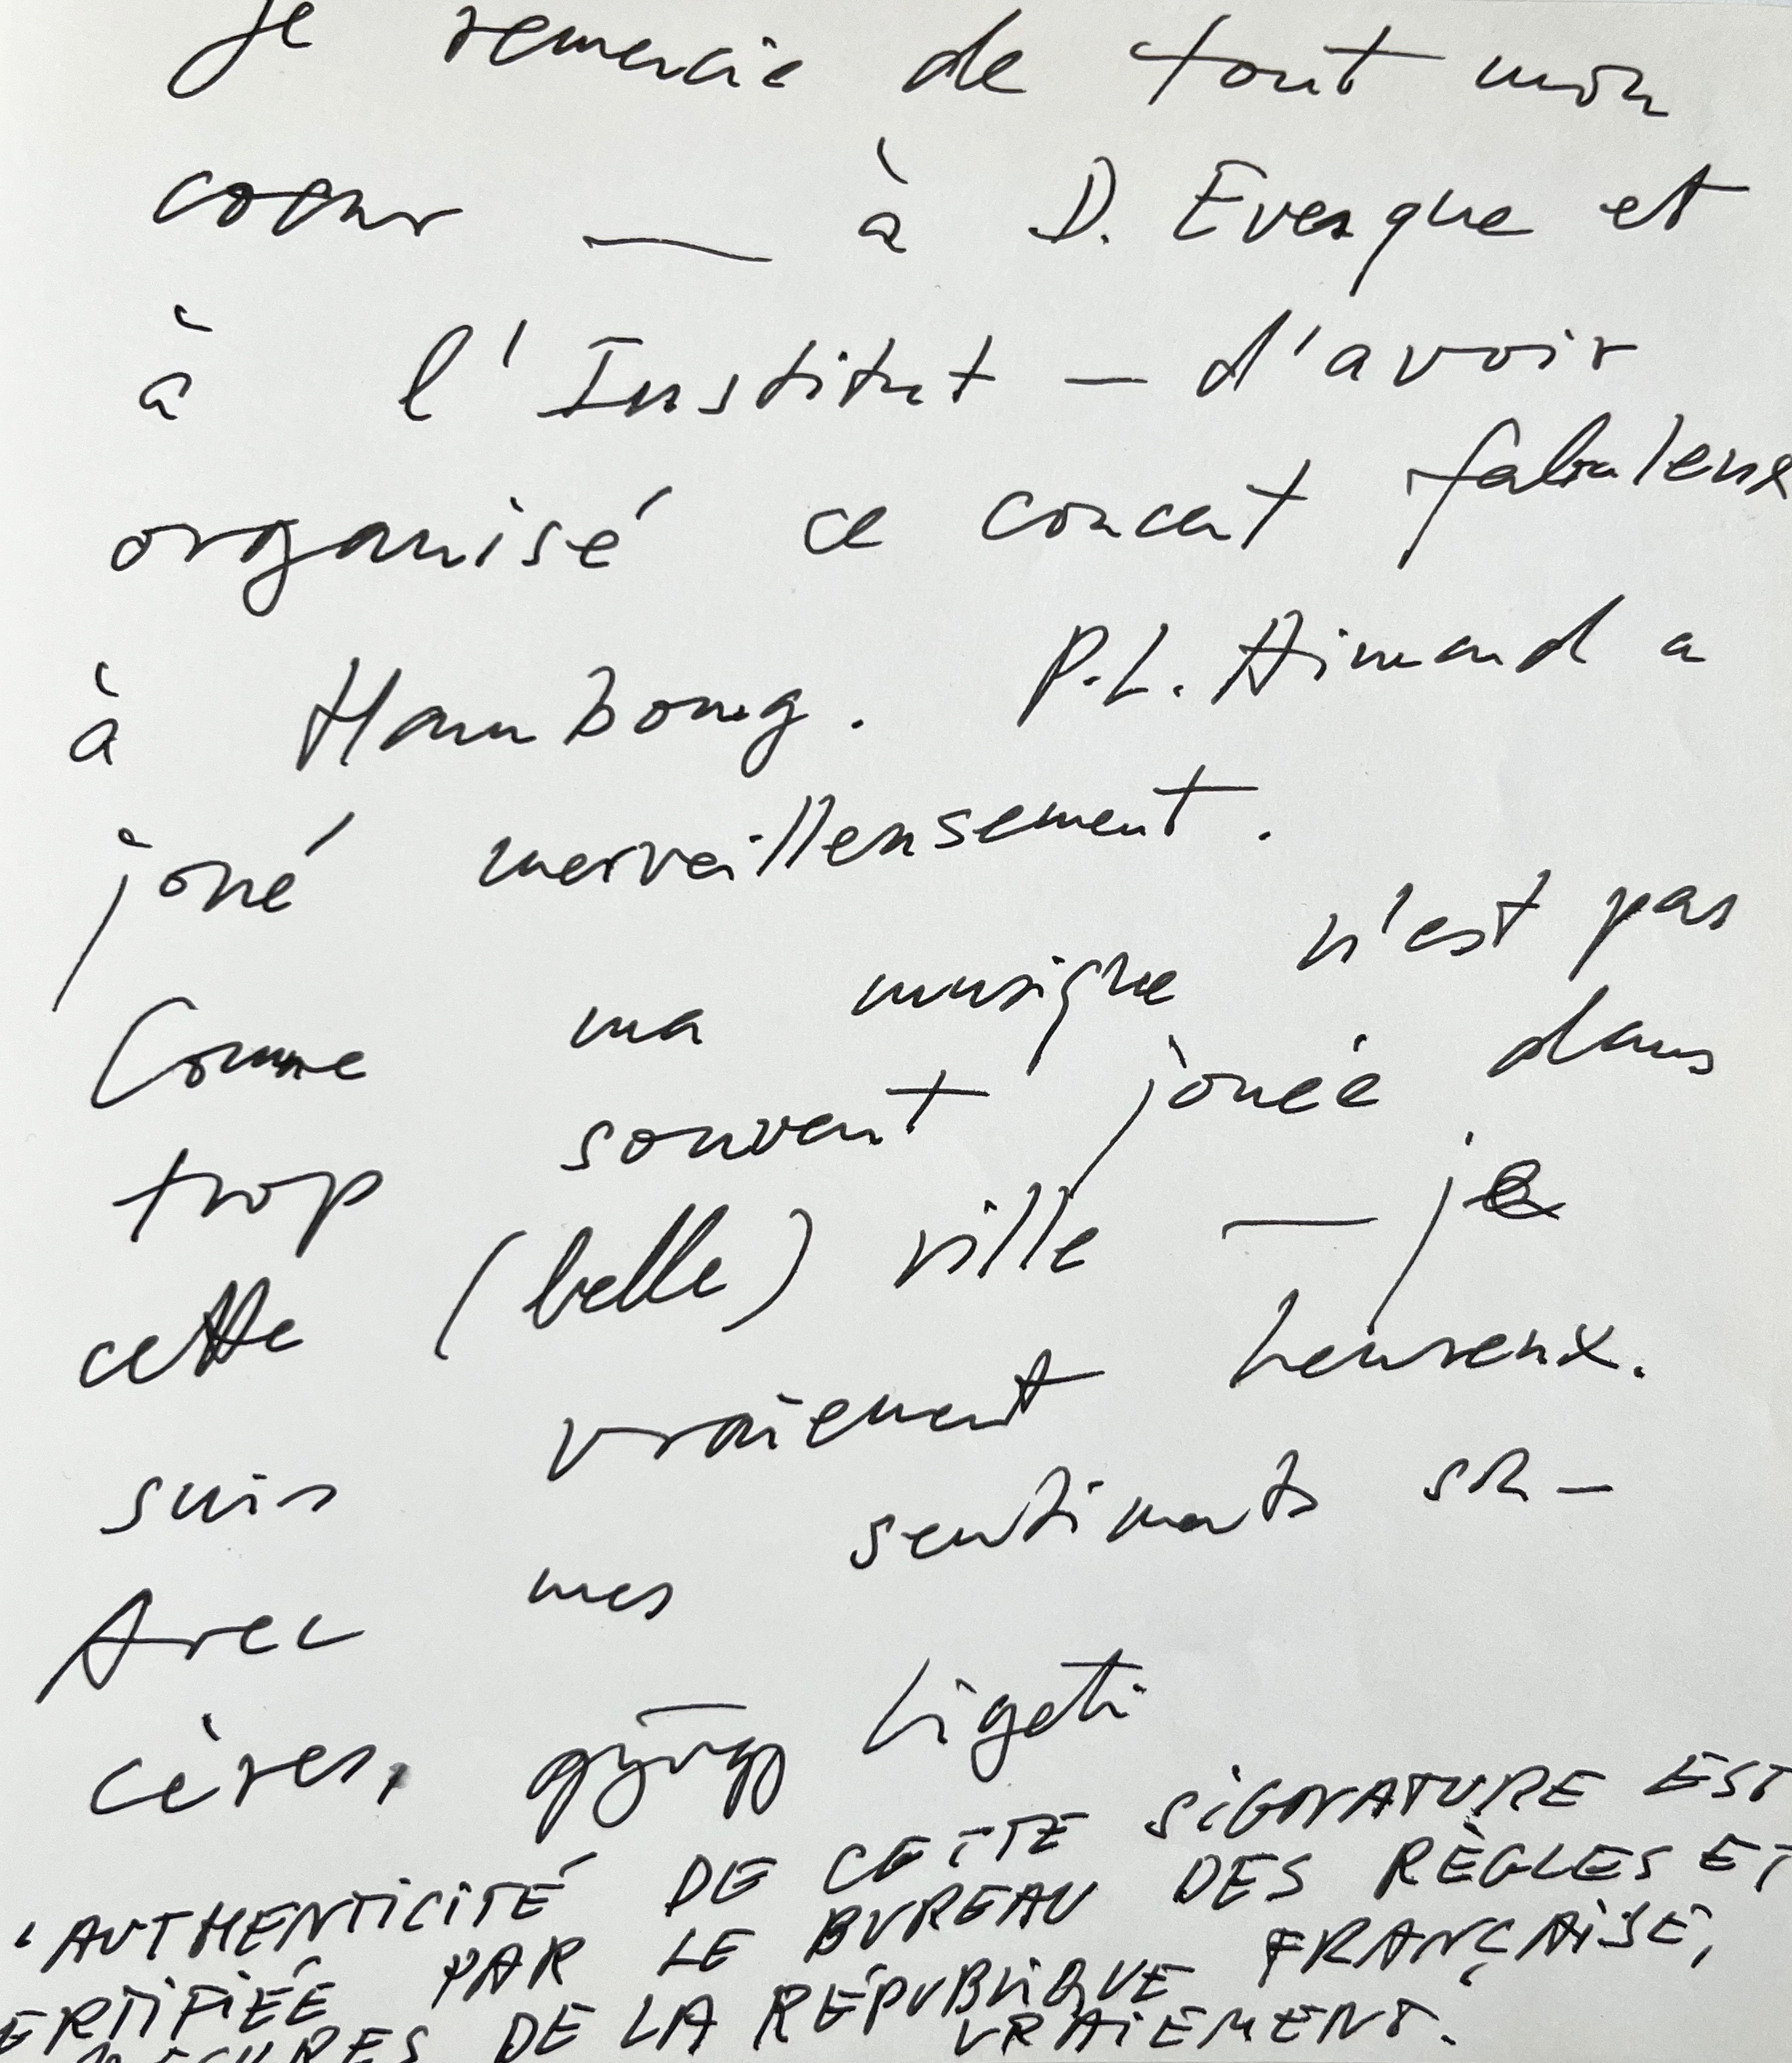 Je remercie de tout mon
coeur — à D. Evesque et
à l'Institut — d'avoir
organisé ce concert fabuleux
à Hambourg. P.L. Aimard a
joué merveilleusement.
Comme ma musique n'est pas
trop souvent jouée dans
cette (belle) ville — je
suis vraiement heureux.
Avec mes sentiments sin-
cères, György Ligeti
'AUTHENTICITÉ DE CETTE SIGNATURE EST
ERTIFIÉE PAR LE BUREAU DES RÈGLES ET
MESURES DE LA RÉPUBLIQUE FRANÇAISE,
VRAIEMENT.